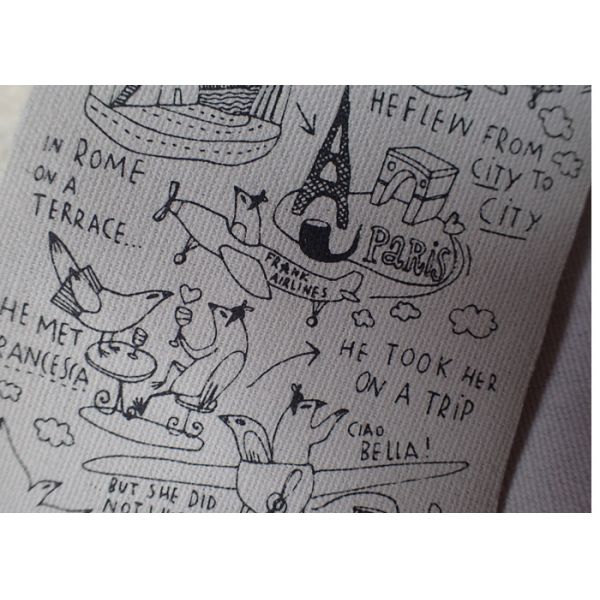 HE FLEW FROM
CITY TO
CITY
PARIS
FRANK
AIRLINES
IN ROME
ON A
TERRACE...
HE MET
HE TOOK HER
ON A TRIP
CIAO
BELLA!
...BUT SHE DID
NOT